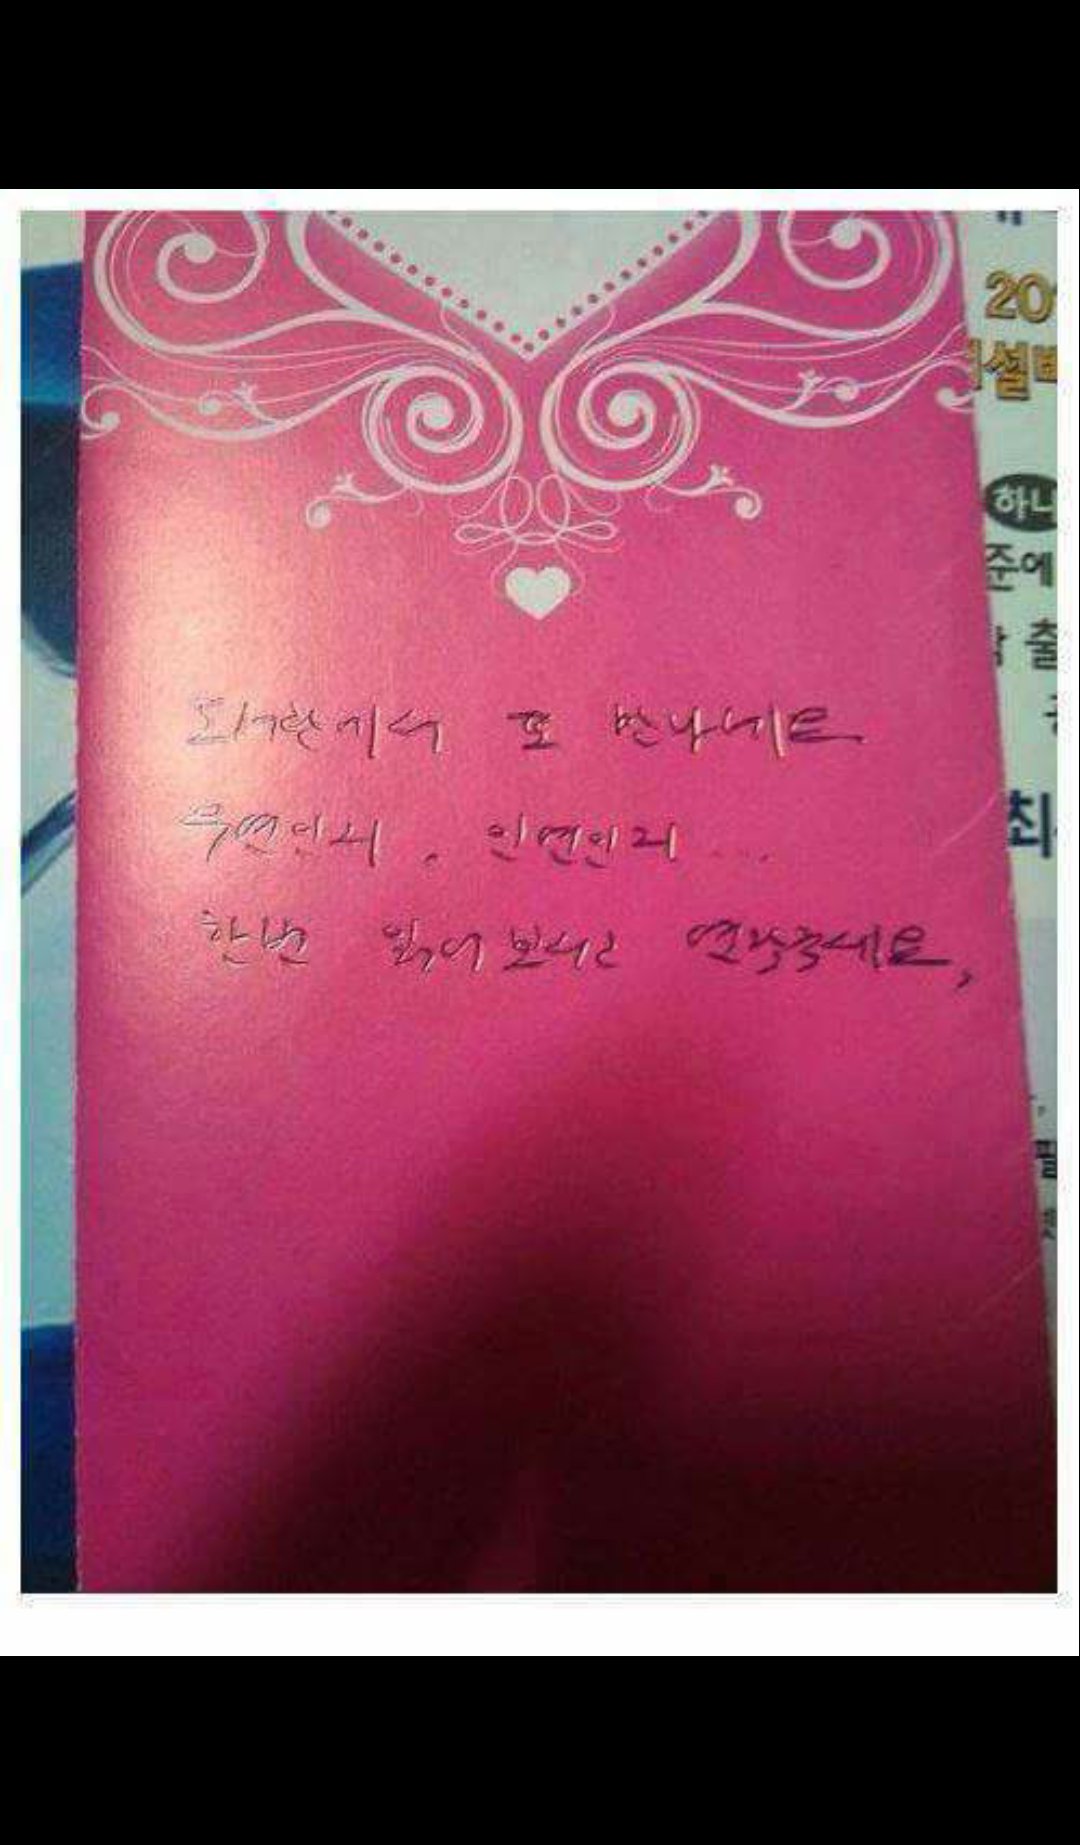 20
설
하나
준에
출
최
도서관에서 또 만나네요
우연인지, 인연인지...
한번 읽어보시고 연락주세요,